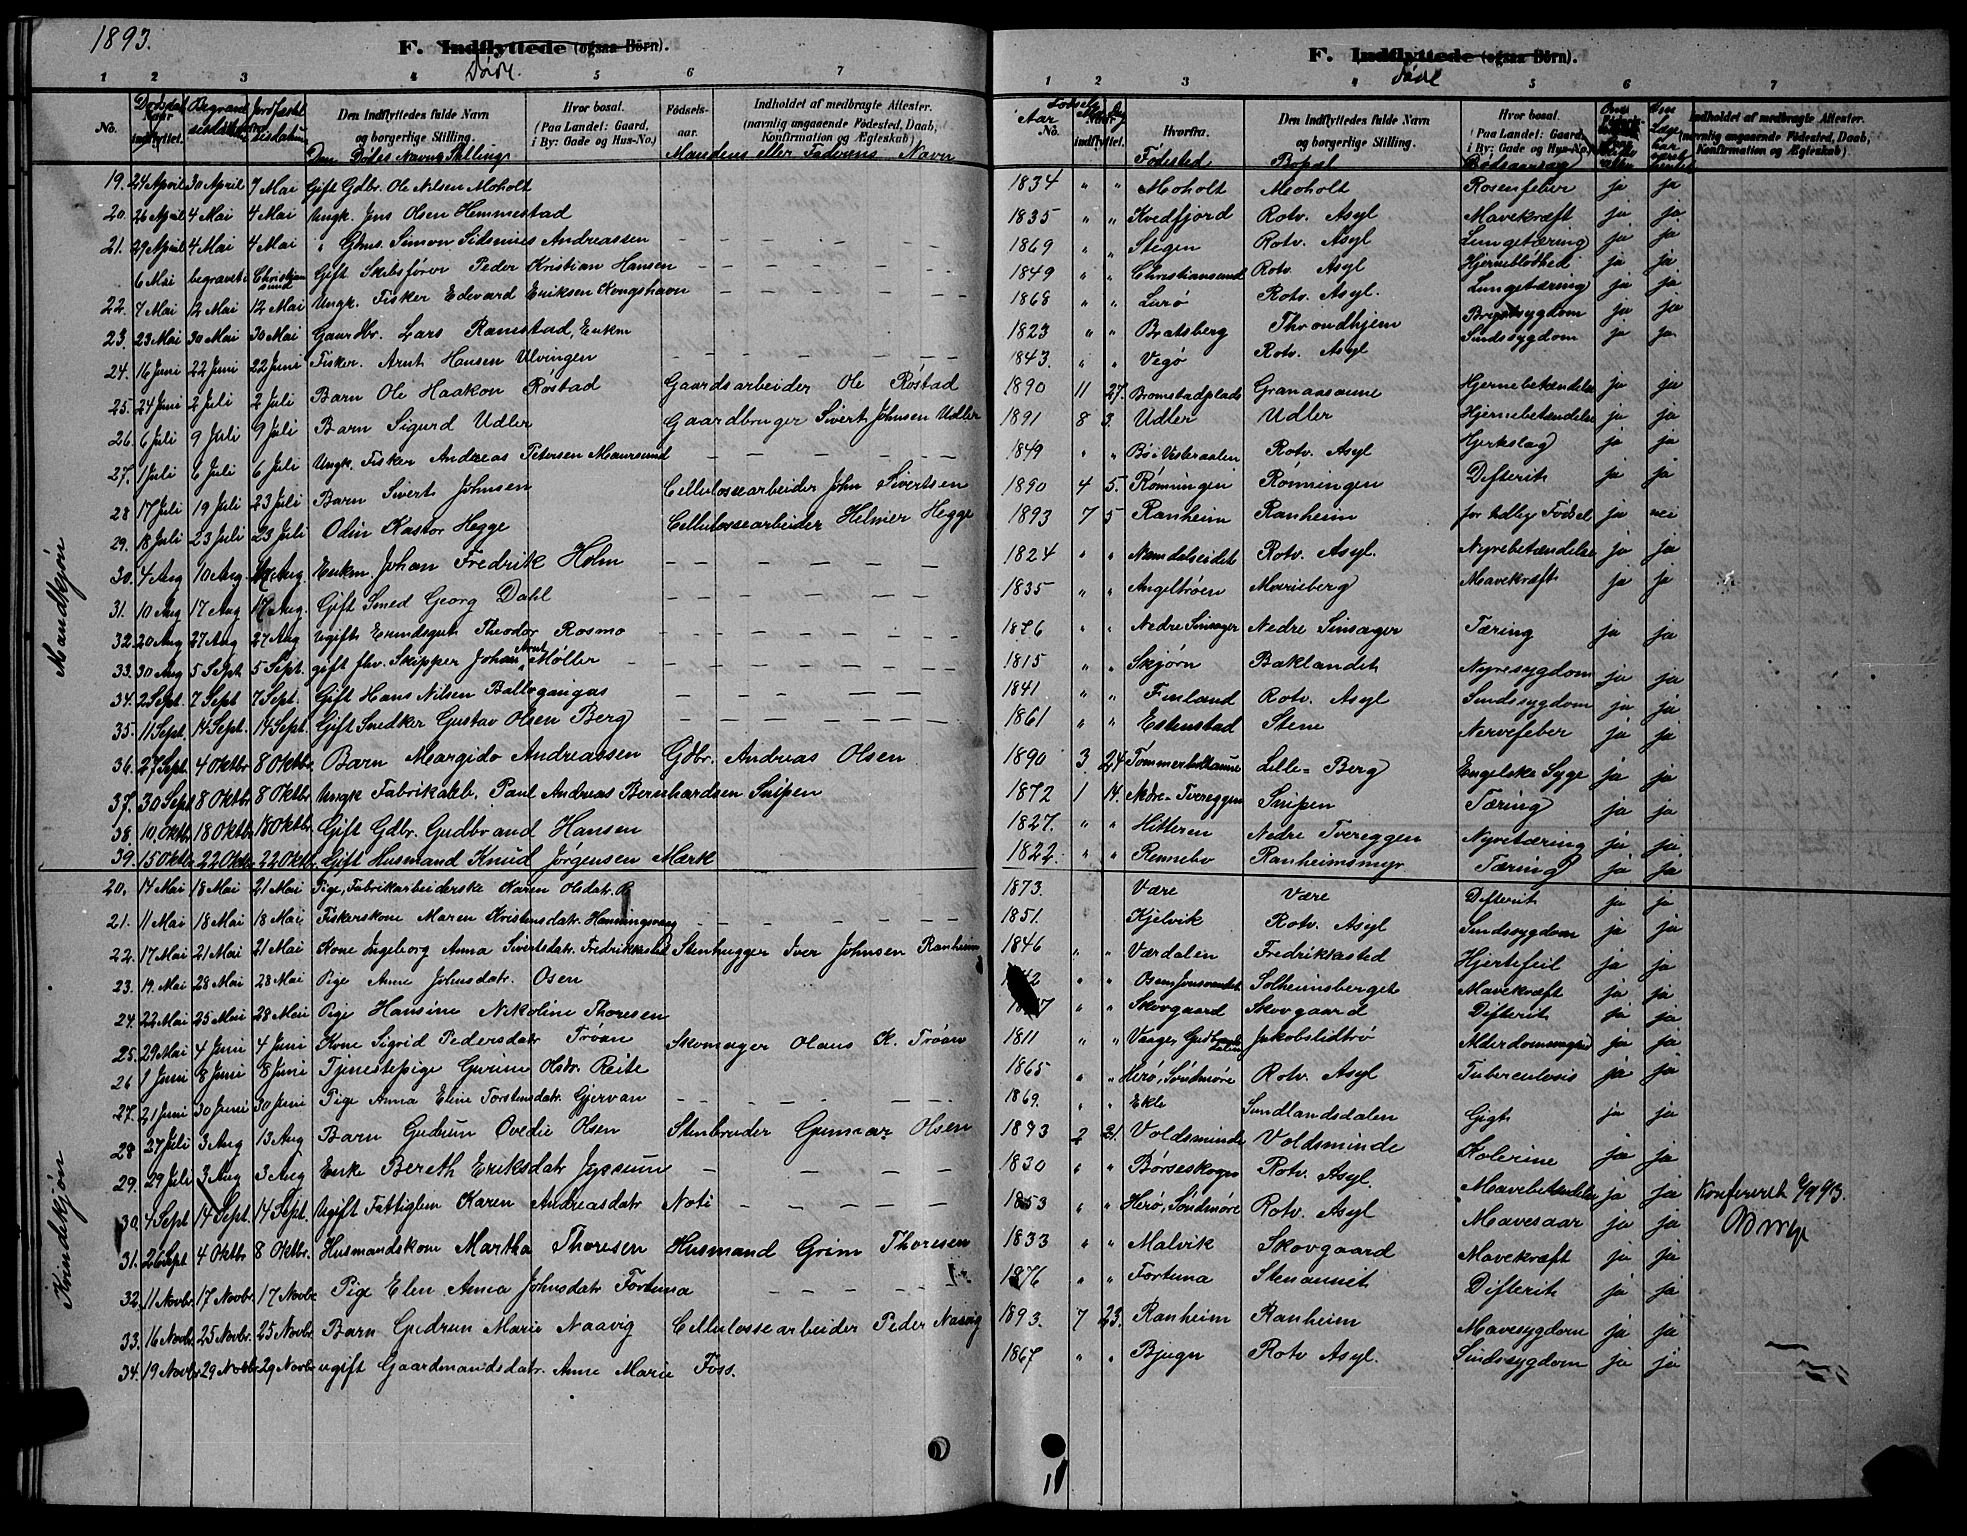 1893.
F. Indflyttede (ogsaa Børn).
Døde.
1 2 3 4 5 6 7
No. Dødsdat. Begravelsesdatum Jordfæstelsesdatum Den Indflyttedes fulde Navn og borgerlige Stilling. Hvor bosat. (Paa Landet: Gaard, i By: Gade og Hus-No.) Fødselsaar. Indholdet af medbragte Attester. (navnlig angaaende Fødested, Daab, Konfirmation og Ægteskab)
Den Dødes Navn og Stilling Mandens eller Faderens Navn
Mandkjøn
19. 24 April 30 April 7 Mai Gift Gdbr. Ole Nilsen Moholt
20. 26 April 4 Mai 4 Mai Ungk. Jens Olsen Hemmestad
21. 29 April 4 Mai 4 Mai " Gbms. Simon Sidsenius Andreassen
6 Mai begravet i Christiansund Gift Skibsfører Peder Kristian Hansen
22. 7 Mai 12 Mai 12 Mai Ungk. Fisker Edevard Eriksen Kongshavn
23. 23 Mai 30 Mai 30 Mai Gaardbr. Lars Ramstad, Enkm
24. 16 Juni 22 Juni 22 Juni Fisker. Arnt Hansen Ulvingen
25. 24 Juni 2 Juli 2 Juli Barn Ole Haakon Røstad Gaardsarbeider Ole Røstad
26. 6 Juli 9 Juli 9 Juli Barn Sigurd Udler Gaardbruger Sivert Johnsen Udler
27. 1 Juli 6 Juli 6 Juli Ungk. Fisker Andreas Petersen Maursund
28 17 Juli 19 Juli 23 Juli Barn Sivert Johnsen Cellulosearbeider John Sivertsen
29. 18 Juli 23 Juli 23 Juli Odin Kastor Hegge Cellulossearbeider Helmer Hegge
30. 4 Aug 10 Aug 10 Aug. Enkm Johan Fredrik Holm
31. 10 Aug 17 Aug 17 Aug. Gift Smed Georg Dahl
32. 20 Aug 27 Aug 27 Aug Ugift Theodor Rosmo
33. 30 Aug 5 Sept 5 Sept. gift fhv. Skipper Johan Arnt Møller
34. 2 Sept. 7 Sept 7 Sept. Gift Hans Nilsen Ballogangas
35. 11 Sept. 14 Sept. 14 Sept. Gift Snedker Gustav Olsen Berg
36. 27 Sept. 4 Oktbr 8 Oktbr. Barn Margido Andreassen Gdbr. Andreas Olsen
37. 30 Sept 8 Oktbr. 8 Oktbr. Ungk Fabrikarb. Paul Andreas Bernhardsen Snipen
38. 10. Oktbr. 18 Oktbr. 18 Oktbr. Gift Gdbr. Gudbrand Hansen
39. 15 Oktbr. 22 Oktbr. 22 Oktbr. Gift Husmand Knud Jørgensen Mærk
Kvindekjøn
20. 14 Mai 18 Mai 21 Mai Pige, Fabrikarbeiderske Karen Olsdatr.
21. 11 Mai 18 Mai 18 Mai Fiskerkone Maren Kristensdatr. Honningsvaag
22. 17 Mai 21 Mai 21 Mai Kone Ingeborg Anna Sivertsdatr. Fredrikkasted Stenhugger Iver Johnsen Ranheim
23. 19. Mai 28 Mai 28 Mai Pige Anne Johnsdatr. Osen
24. 22 Mai 25 Mai 28 Mai Pige Hansine Nikoline Thoresen
25. 29 Mai 4 Juni 4 Juni Kone Sigrid Pedersdatr Trøan Skomager Olaus K. Trøan
26 1 Juni 8 Juni 8 Juni Tjenestepige Gurine Olsdr. Reite
27. 21 Juni 30 Juni 30 Juni Pige Anna Eline Torstensdatr. Gjervan
28 27 Juli 3 Aug 13 Aug Barn Gudrun Ovedie Olsen Stenbruder Gunnar Olsen
29. 29 Juli 3 Aug 3 Aug Enke Bereth Eriksdatr
30. 4 Sept 14 Sept. 14 Sept. Ugift Fattiglem Karen Andreasdatr Noti
31. 26 Sept 4 Oktbr 8 Oktbr. Husmandskone Martha Thoresen Husmand Grim Thoresen
32. 11 Novbr. 17 Novbr. 17 Novbr Pige Elen Anna Johnsdatr Fortuna
33. 16 Novbr. 25 Novbr. 25 Novbr. Barn Gudrun Marie Naavig Cellulossearbeider Peder Naavig
34. 19 Novbr. 29 Novbr. 29 Novbr ugift Gaardmandsdatr. Anne Marie Foss.
F. Indflyttede (ogsaa Børn).
Døde
1 2 3 4 5 6 7
No. Aar Hvorfra. Den Indflyttedes fulde Navn og borgerlige Stilling. Hvor bosat. (Paa Landet: Gaard, i By: Gade og Hus-No.) Indholdet af medbragte Attester. (navnlig angaaende Fødested, Daab, Konfirmation og Ægteskab)
Fødested Bopæl Dødsaarsag
1834 " " Moholt Moholt Rosenfeber ja ja
1835 " " Kvedfjord Rotv. Asyl Mavekræft ja ja
1869 " Stegen Rotv. Asyl Lungetæring ja ja
1849 " " Christiansund Rotv. Asyl Hjernebløthed ja ja
1868 " " Lurø Rotv. Asyl. Lungetæring ja ja
1823 " " Bratsberg Throndhjem Brystsygdom ja ja
1843. " " Vegø Rotv. Asyl Sindssygdom ja ja
1890 11 27. Bromstadplads Granaasaune Hjernebetændelse ja ja
1891 8 3. Udler Udler Hjernebetændelse ja ja
1849 " " Bø i Vesteraalen Rotv. Asyl Hjerteslag ja ja
1890 4 5. Rønningen Rønningen Difterit ja ja
1893 7 5 Ranheim Ranheim for tidlig Fødsel ja nei
1824 " " Namdalseidet Rotv. Asyl. Nyrebetændelse ja ja
1835 " " Angeltrøen Marieberg Mavekræft ja ja
1876 " " Nedre Sinsager Nedre Sinsager Tæring ja ja
1815 " " Skjørn Baklandet Nyresygdom ja ja
1841 " " Finland Rotv. Asyl Sindssygdom ja ja
1861 " " Estenstad Stene Nervefeber ja ja
1890 3. 24 Tømmerholtaune Lille-Berg Engelske Syge ja ja
1872 1 14. Nedre-Tvereggen Snipen Tæring ja ja
1827. " " Hitteren Nedre Tvereggen Nyretæring ja ja
1822. " " Rennebo Ranheimsmyr Tæring ja ja
1873. Være Være Difterit ja ja
1851. Kjelvik Rotv. Asyl Sindssygdom ja ja
1846 " " Værdalen Fredrikkasted Hjertefeil ja ja
" " Solheimsberget Mavekræft ja ja
" " Skovgaard Skovgaard Difterit ja ja
1811 " " Vaage, Gudbrandsdalen Jakobslidtrø Alderdomssvaghed ja ja
1865 " " Herø, Søndmøre Rotv. Asyl Tuberculosis ja ja
1869. " " Ekle Sundlandsdalen Gigt ja ja
1893 2 21. Voldsminde Voldsminde Kolerine ja ja
1830 " " Børseskogn Rotv. Asyl. Mavebetændelse ja ja Konfereret
1853 " " Herø, Søndmøre Rotv. Asyl Mavesaar ja ja
1833 " " Malvik Skovgaard Mavekræft ja ja
1876 " " Fortuna Stenaunet Difterit ja ja
1893. 7 23. Ranheim Ranheim Mavesygdom ja ja
1867 " " Bjugn Rotv Asyl. Sindssygdom ja ja